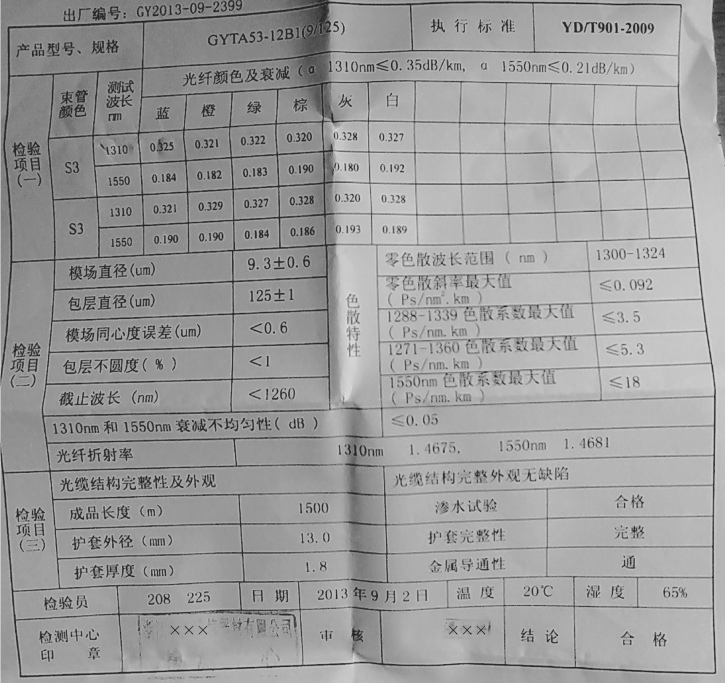 出厂编号: GY2013-09-2399
产品型号、规格 GYTA53-12B1(9/125) 执行标准 YD/T901-2009
检验项目(一) 束管颜色 测试波长nm 光纤颜色及衰减(α 1310nm≤0.35dB/km, α 1550nm≤0.21dB/km)
蓝 橙 绿 棕 灰 白
S3 1310 0.325 0.321 0.322 0.320 0.328 0.327
1550 0.184 0.182 0.183 0.190 0.180 0.192
S3 1310 0.321 0.329 0.327 0.328 0.320 0.328
1550 0.190 0.190 0.184 0.186 0.193 0.189
检验项目(二) 模场直径(um) 9.3±0.6 色散特性 零色散波长范围( nm ) 1300-1324
包层直径(um) 125±1 零色散斜率最大值( Ps/nm².km ) ≤0.092
模场同心度误差(um) <0.6 1288-1339 色散系数最大值( Ps/nm.km ) ≤3.5
包层不圆度( % ) <1 1271-1360 色散系数最大值( Ps/nm.km ) ≤5.3
截止波长 (nm) <1260 1550nm 色散系数最大值( Ps/nm.km ) ≤18
1310nm 和 1550nm 衰减不均匀性( dB ) ≤0.05
光纤折射率 1310nm 1.4675, 1550nm 1.4681
检验项目(三) 光缆结构完整性及外观 光缆结构完整外观无缺陷
成品长度(m) 1500 渗水试验 合格
护套外径(mm) 13.0 护套完整性 完整
护套厚度(mm) 1.8 金属导通性 通
检验员 208 225 日期 2013年9月2日 温度 20℃ 湿度 65%
检测中心印章 ××× 有限公司 审核 ××× 结论 合格